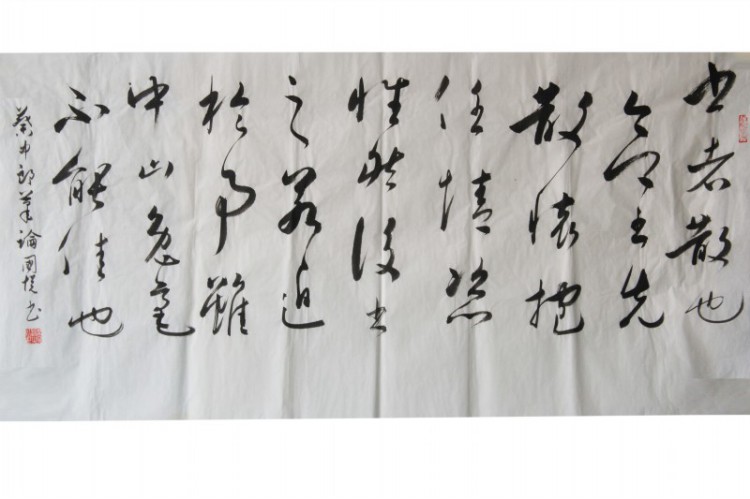 書者散也
欲書先
散懷抱
任情恣
性然後書
之若迫
於事雖
中山兔毫
不能佳也
蔡中郎筆論國書